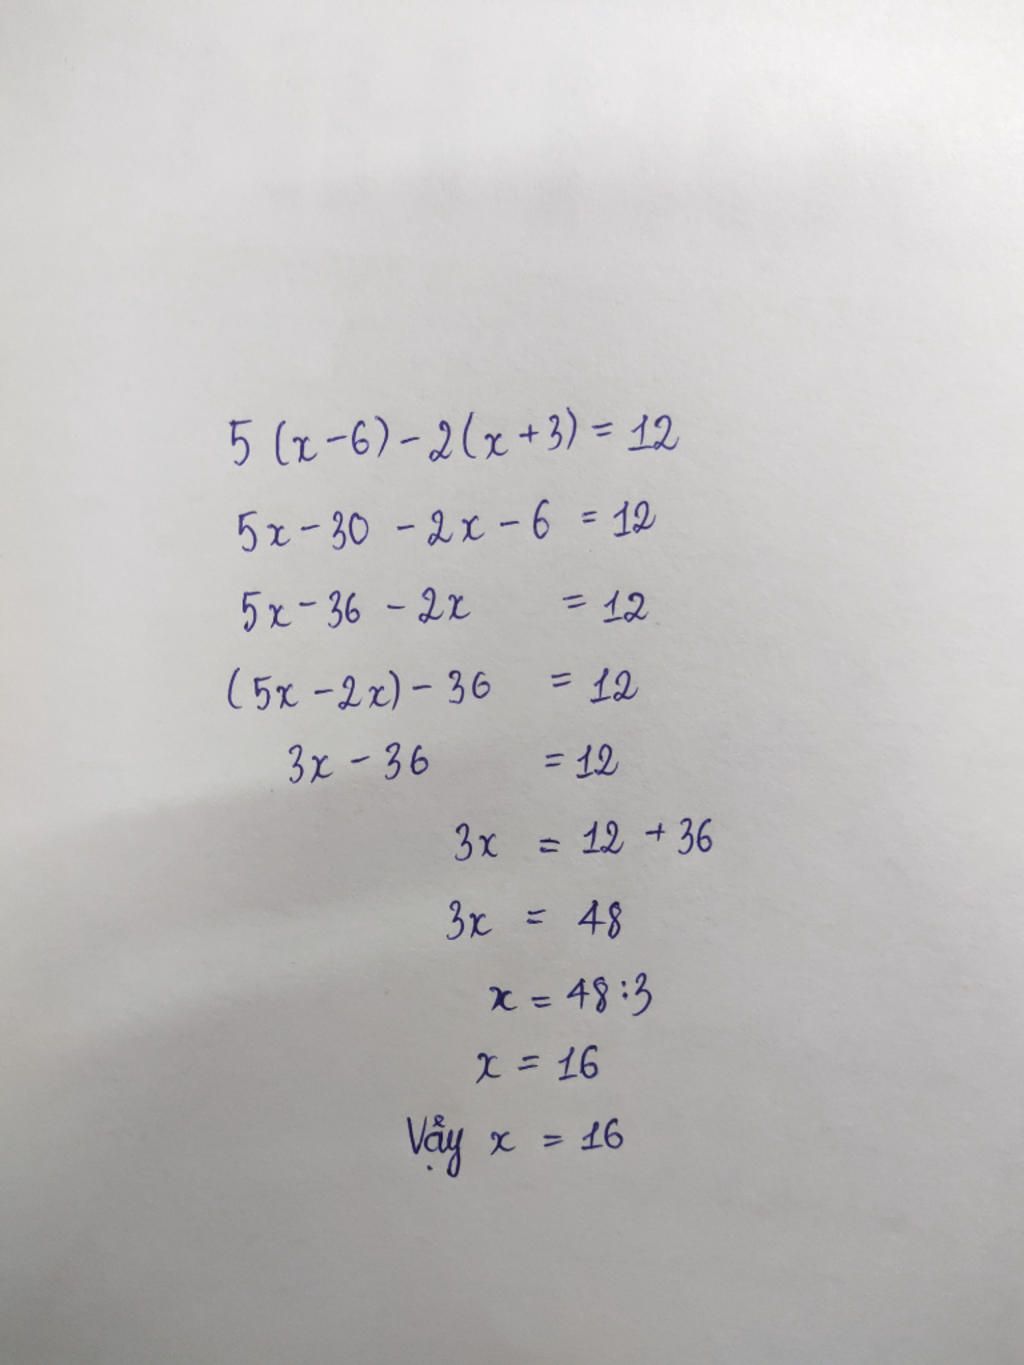 5 (x - 6) - 2 (x + 3) = 12
5x - 30 - 2x - 6 = 12
5x - 36 - 2x = 12
(5x - 2x) - 36 = 12
3x - 36 = 12
3x = 12 + 36
3x = 48
x = 48 : 3
x = 16
Vậy x = 16